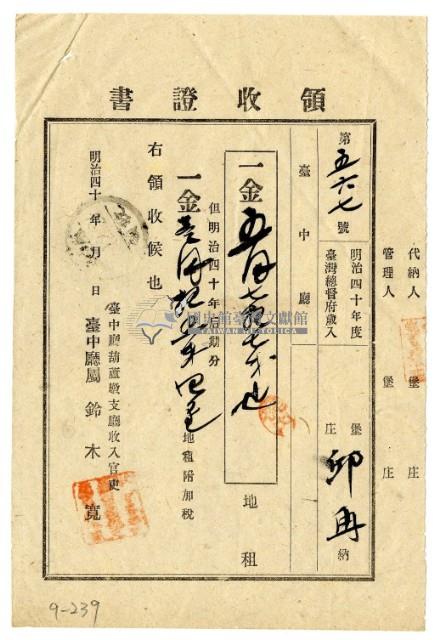 領收證書
代納人 堡 庄
管理人 堡 庄
明治四十年度
臺灣總督府歲入
堡
庄
邱 冉 納
第五六七號
臺中廳
一金五円七
地租
但明治四十年后期分
一金
地租附加稅
右領收候也
明治四十年 月 日
臺中廳葫蘆墩支廳收入官吏
臺中廳屬 鈴木寬
國史館臺灣文獻館
TAIWAN HISTORICA
9-239